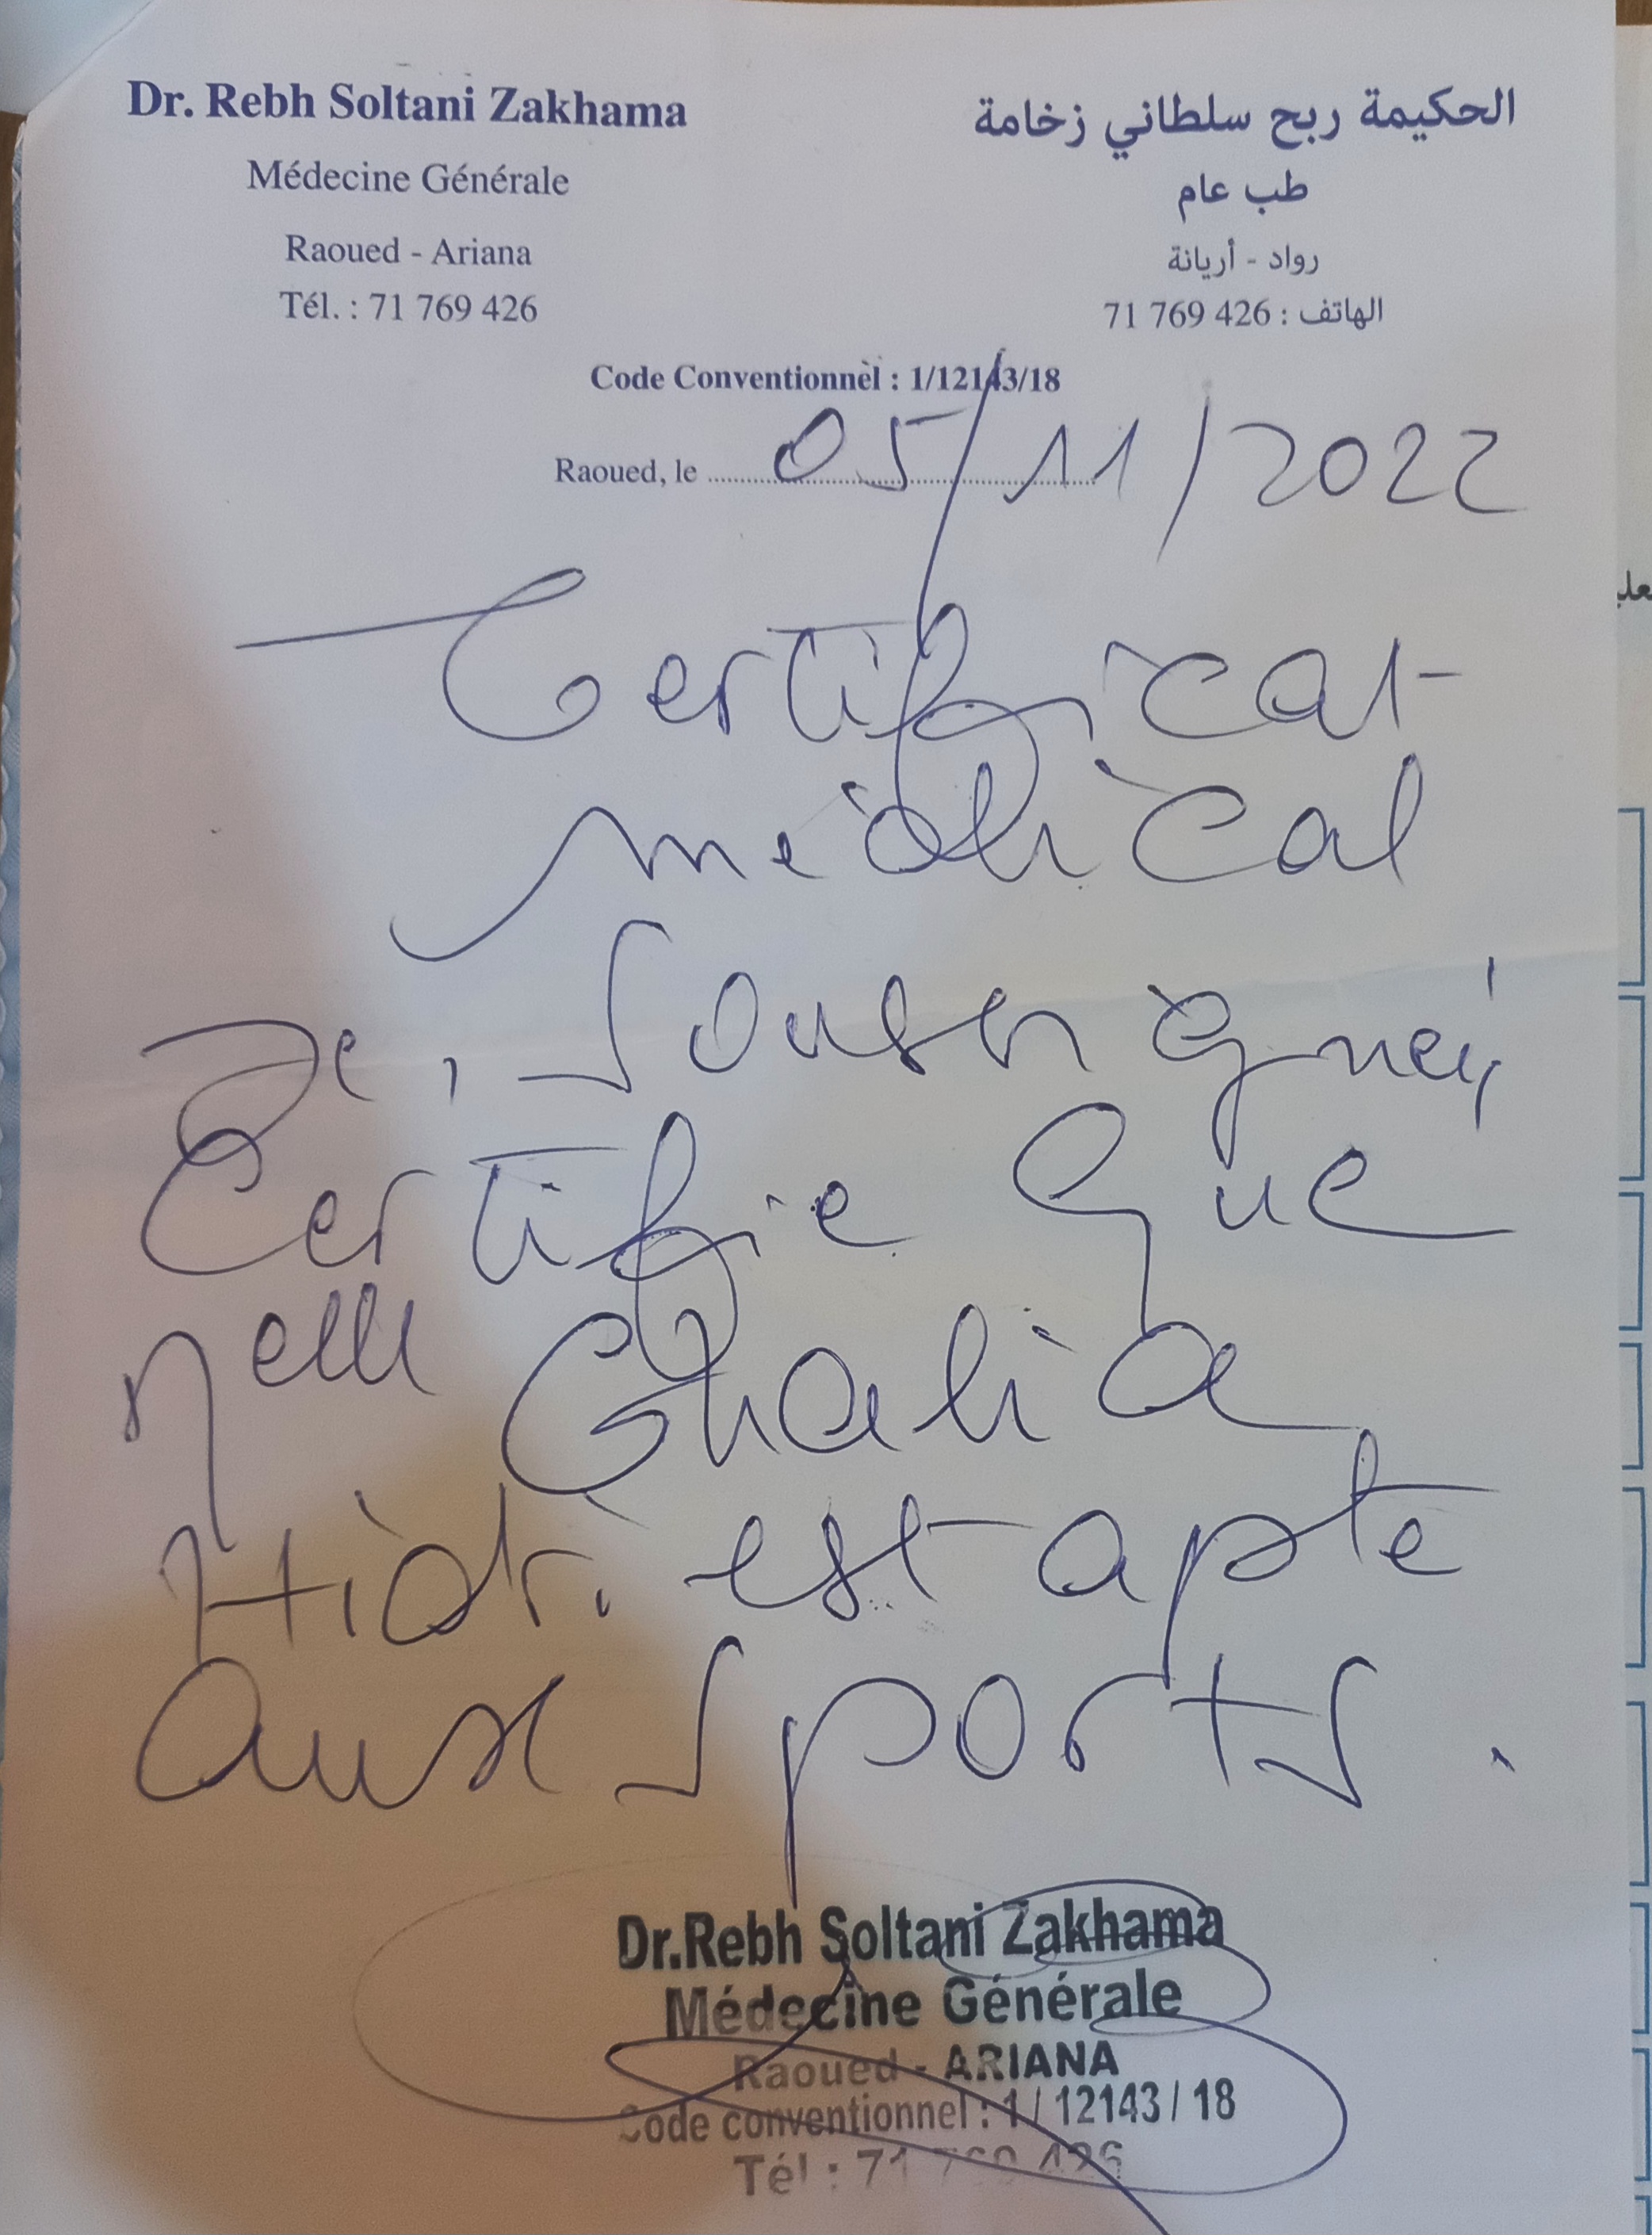 Dr. Rebh Soltani Zakhama
Médecine Générale
Raoued - Ariana
Tél. : 71 769 426
الحكيمة ربح سلطاني زخامة
طب عام
رواد - أريانة
الهاتف : 426 769 71
Code Conventionnel : 1/12143/18
Raoued, le 05/11/2022
Certificat
médical
Je, soussigné,
Certifie que
Melle Ghalia
Hidri est apte
aux sports.
Dr.Rebh Soltani Zakhama
Médecine Générale
Raoued - ARIANA
Code conventionnel : 1/12143/18
Tél : 71 769 426